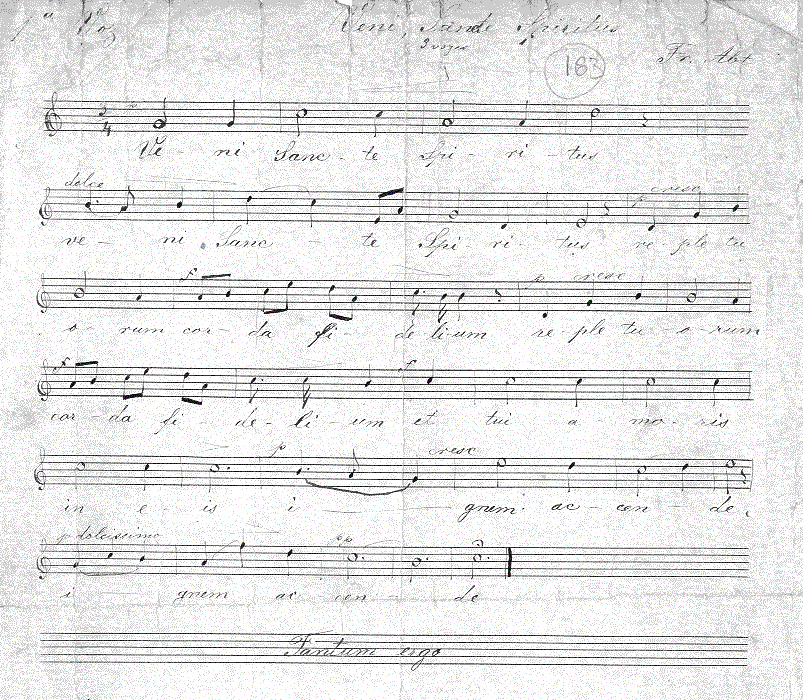 1ª Voz
Veni, Sancte Spiritus
2 voces
183
Fr. Abt
3 4 p
Ve - ni Sanc - te Spi - ri - tus
dolce p cresc
ve - ni Sanc - te Spi - ri - tus re - ple tu
f p cresc
o - rum cor - da fi - de li - um re - ple tu - o - rum
f f
cor - da fi - de - li - um et tui a - mo - ris
p cresc
in e - is i - gnem ac - cen - de,
p dolcissimo pp
i - gnem ac - cen - de
Tantum ergo